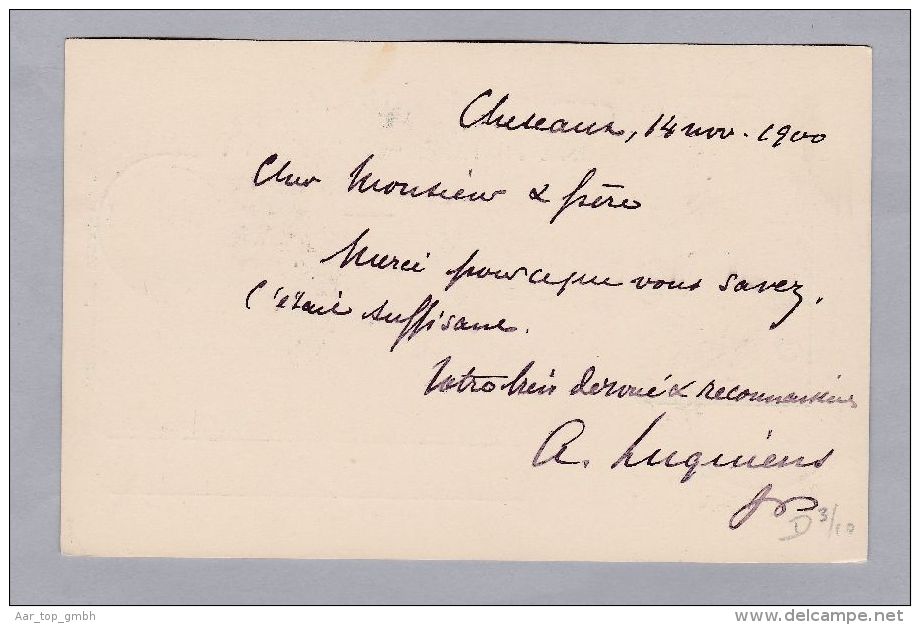 Cheseaux, 14 nov. 1900
Cher Monsieur & frère
Merci pour ce que vous savez.
C'était suffisant.
Votre bien dévoué & reconnaissant
A. Luquiens
D 3/10
Aar_top_gmbh
www.delcampe.net